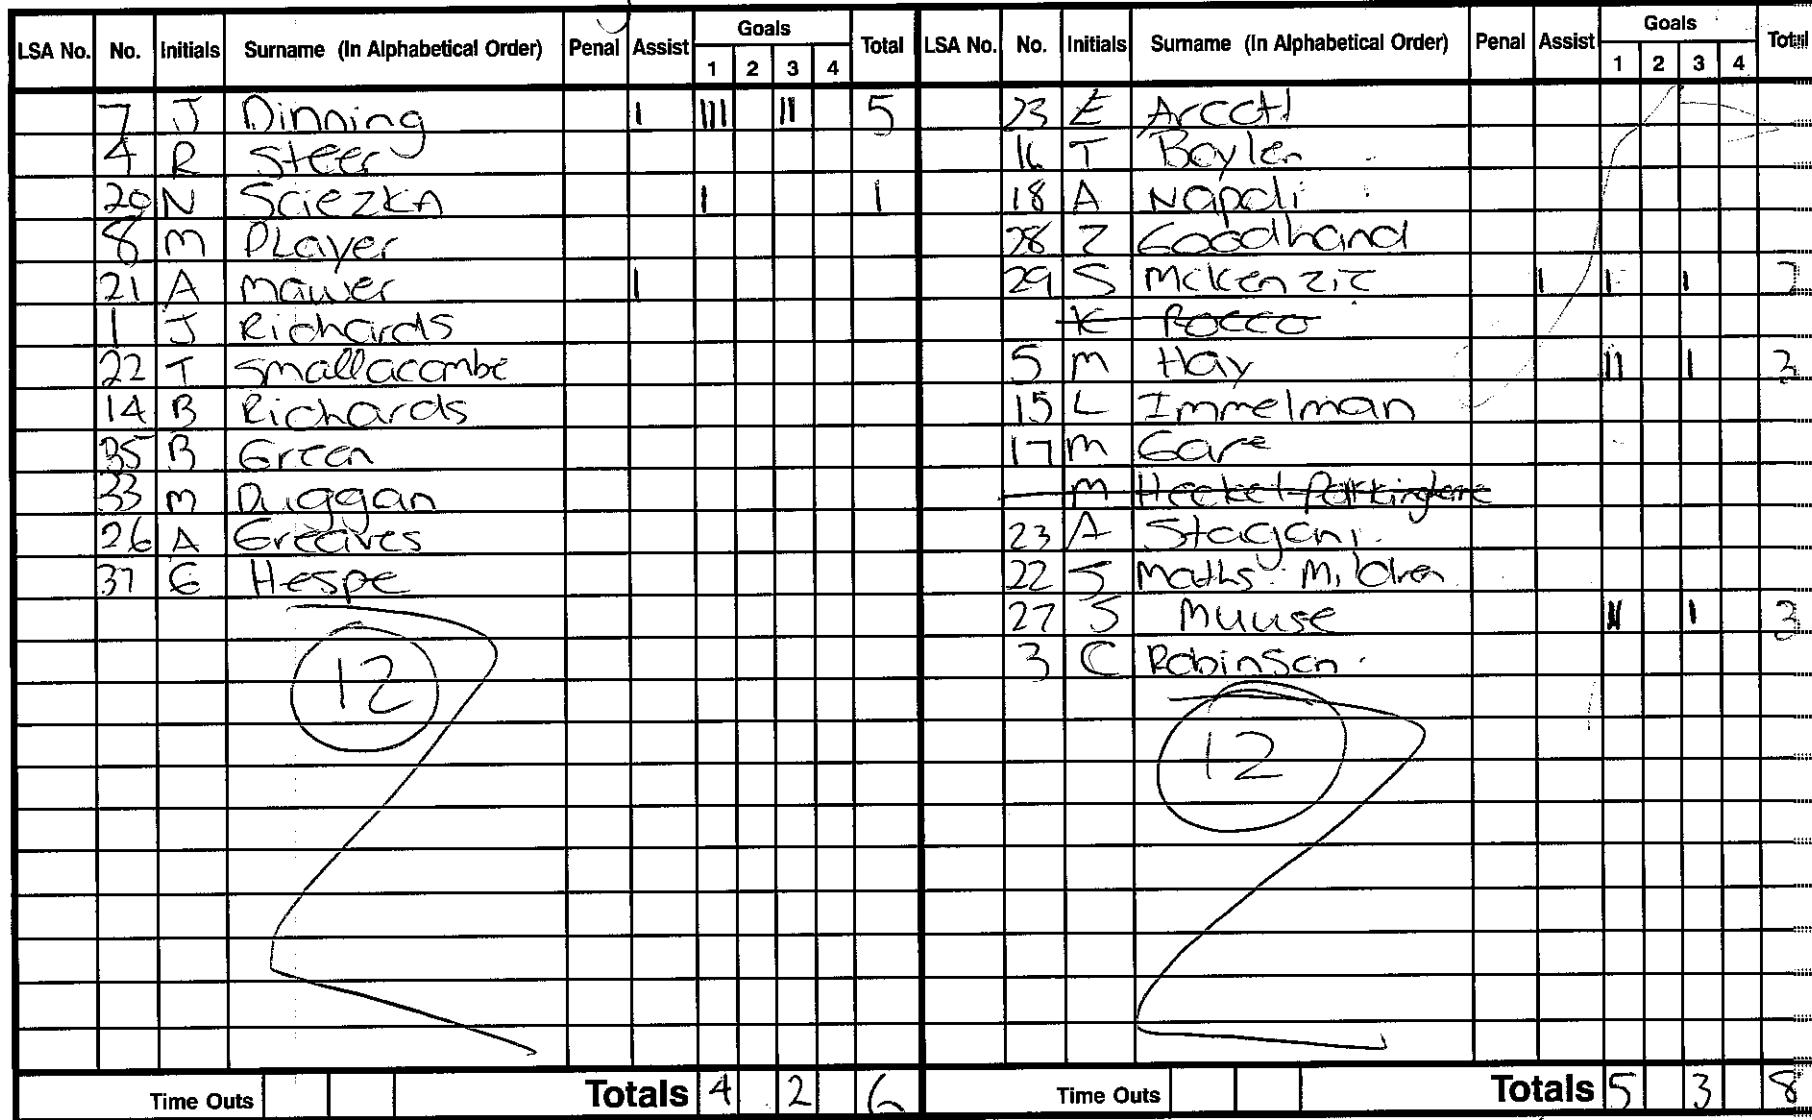 LSA No. No. Initials Surname (In Alphabetical Order) Penal Assist Goals 1 2 3 4 Total
7 J Dinning I III II 5
4 R Steer
20 N Sciezka I 1
8 M Player
21 A Mawer I
1 J Richards
22 T Smallacombe
14 B Richards
35 B Green
33 M Duggan
26 A Greaves
37 G Hespe
12
Time Outs Totals 4 2 6
LSA No. No. Initials Surname (In Alphabetical Order) Penal Assist Goals 1 2 3 4 Total
23 E
16 T Boylen
18 A Napoli
28 Z Goodhand
29 S McKenzie I I I 2
K Rocco
5 M Hay II I 3
15 L Immelman
17 M Gare
M
23 A Stagani
22 S
27 S Muuse II I 3
3 C Robinson
12
Time Outs Totals 5 3 8